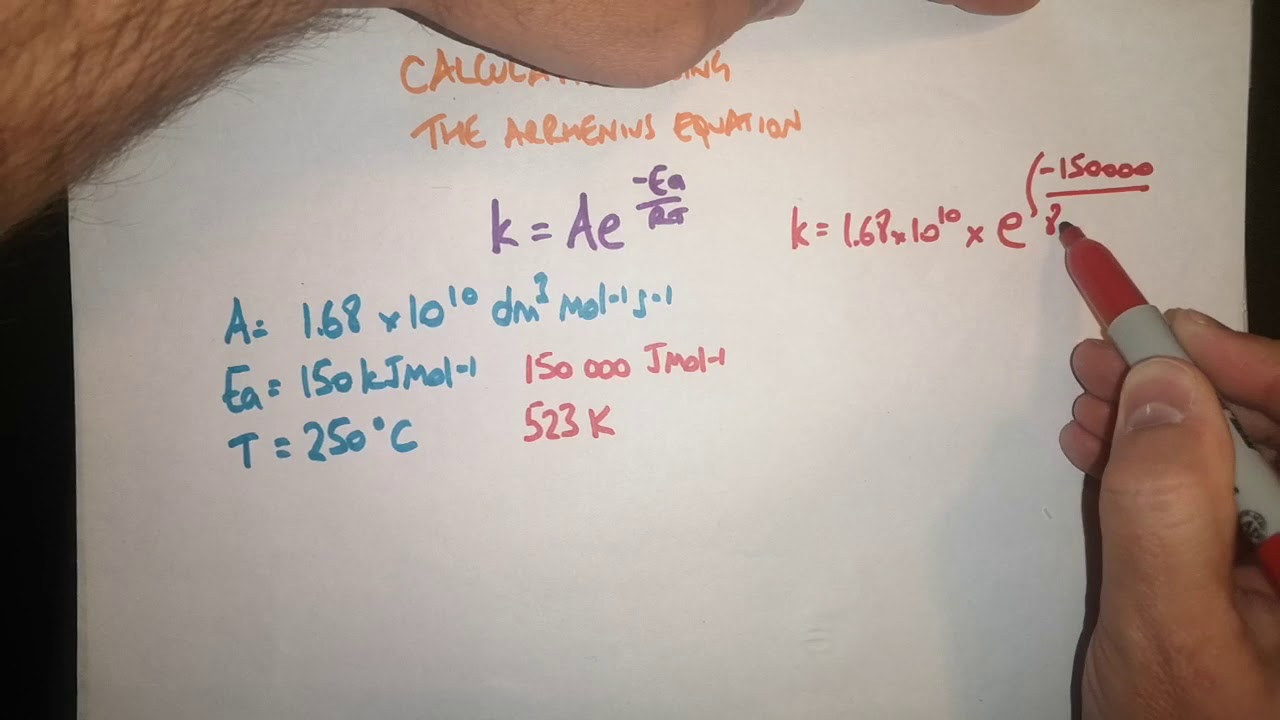 THE ARRHENIUS EQUATION
k = Ae^(-Ea/RT)
k = 1.68 × 10^10 × e^(-150000/8
A = 1.68 × 10^10 dm^3 mol-1 s-1
Ea = 150 kJ mol-1 150 000 J mol-1
T = 250°C 523 K